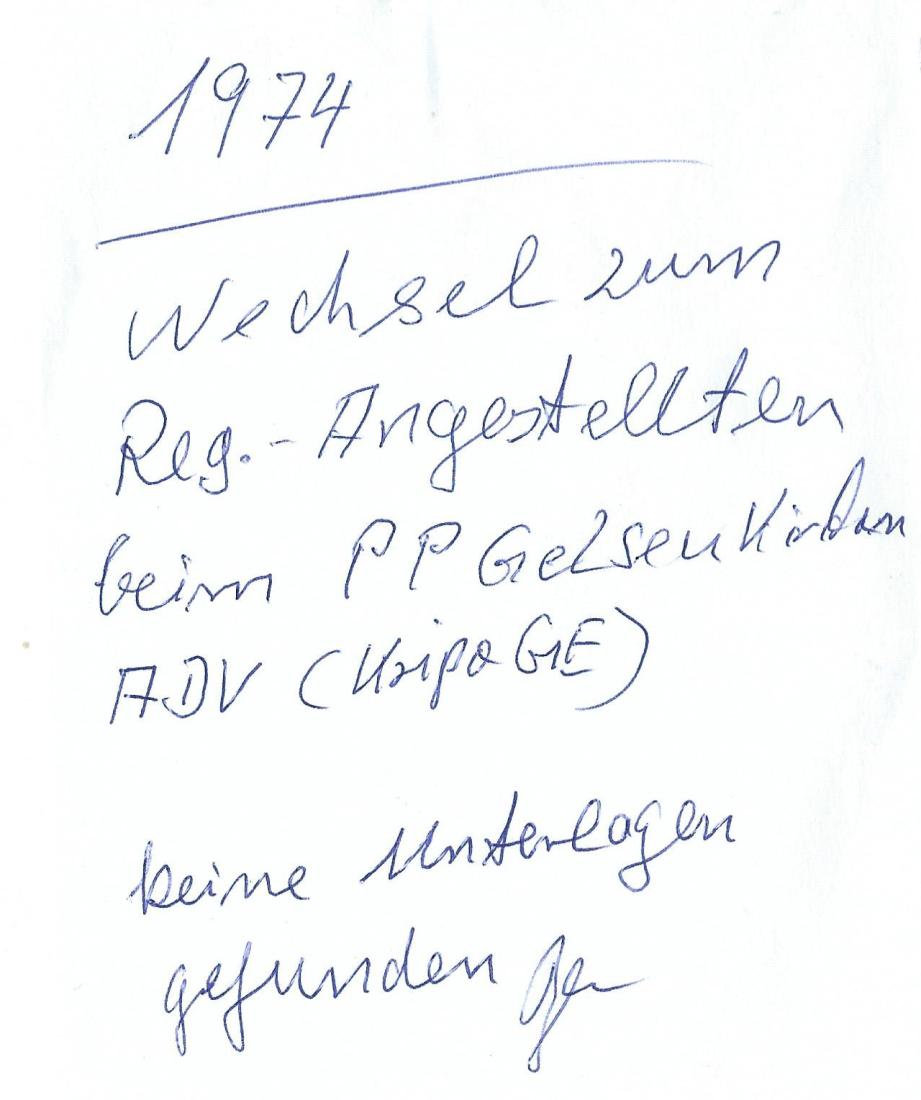 1974
Wechsel zum
Reg.-Angestellten
beim PP Gelsenkirchen
ADV (Kripo GE)
keine Unterlagen
gefunden